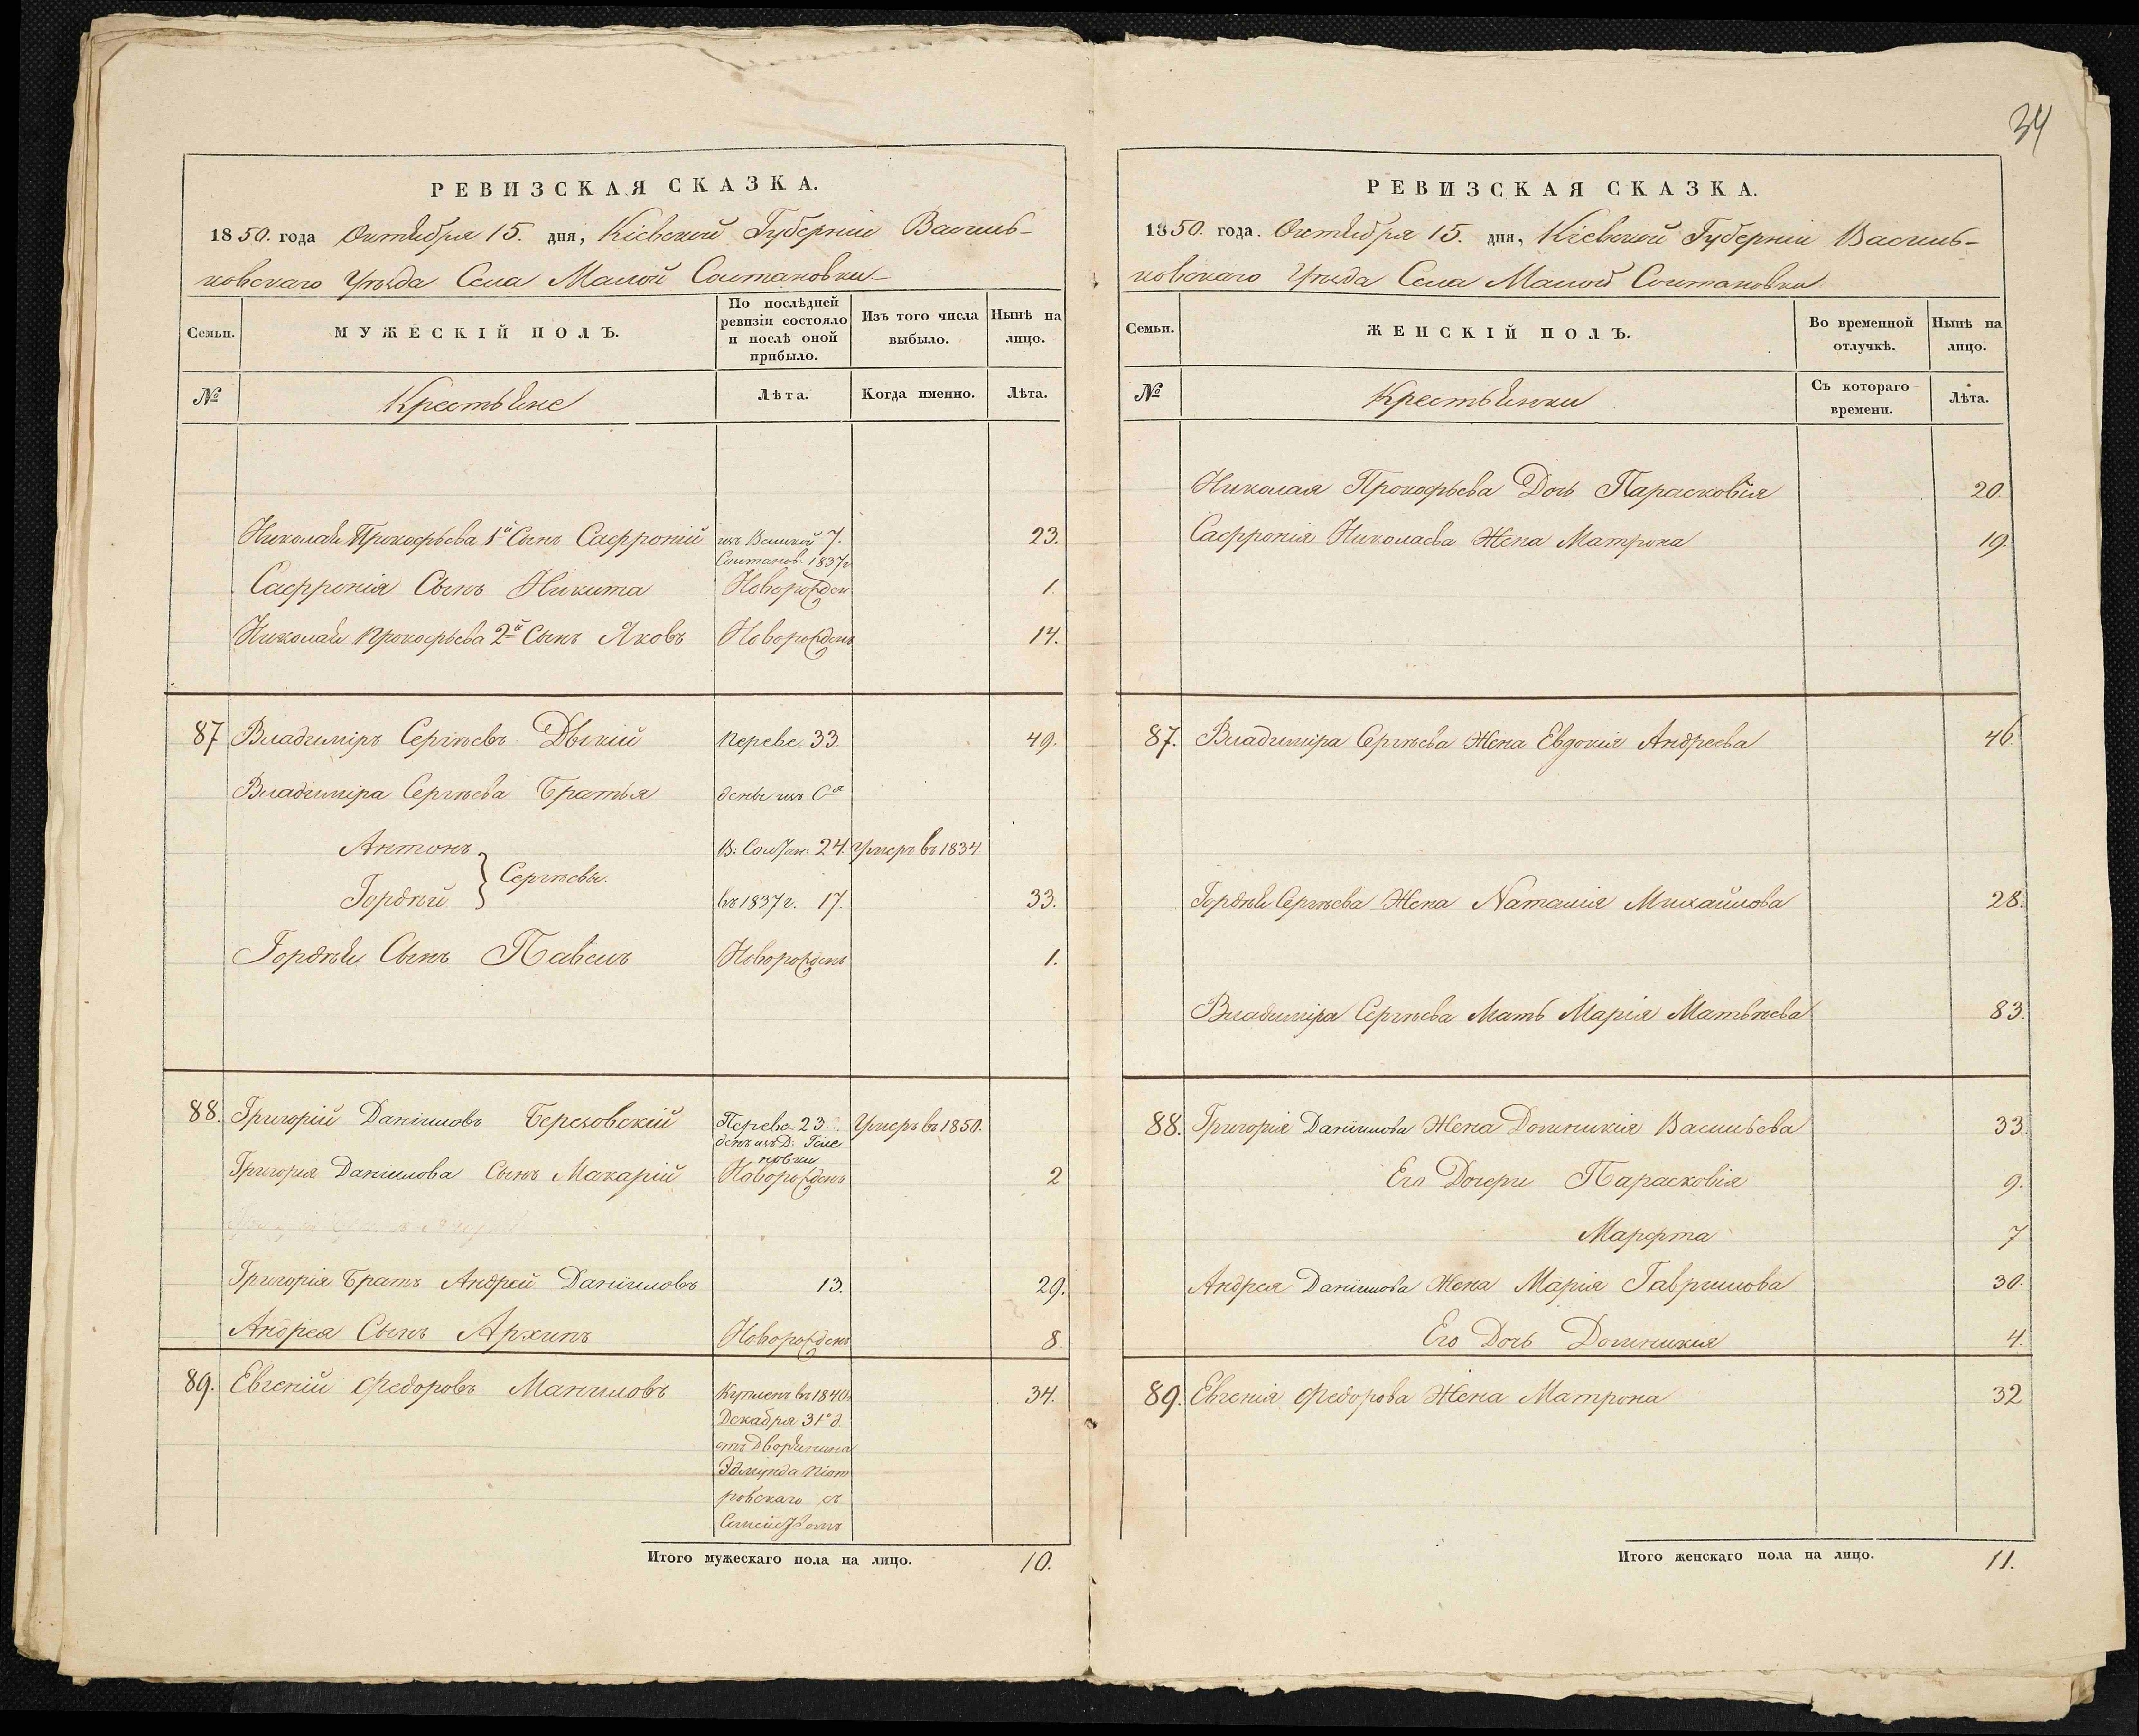 34
РЕВИЗСКАЯ СКАЗКА.
1850. года Октября 15. дня, Кіевской Губерніи Василь-
ковскаго Уѣзда Села Малой Солтановки.
Семьи.
МУЖЕСКІЙ ПОЛЪ.
По послѣдней
ревизіи состояло
и послѣ оной
прибыло.
Изъ того числа
выбыло.
Нынѣ на
лицо.
№
Крестьяне
Лѣта.
Когда именно.
Лѣта.
Николая Прокофьева 1й Сынъ Сафроній изъ Великой 7. 23.
Солтанов. 1837г
Сафронія Сынъ Никита Новорожден 1.
Николая Прокофьева 2й Сынъ Яковъ Новорожденъ 14.
87 Владимиръ Сергѣевъ Дѣкій Переве- 33 49.
Владиміра Сергѣева Братья дены изъ Са
Антонъ В: Солтан: 24. Умеръ въ 1834
Сергѣевы.
Гордѣй въ 1837г. 17. 33.
Гордѣя Сынъ Павелъ Новорожденъ 1.
88. Григорій Даніиловъ Березовскій Переве- 23 Умеръ въ 1850.
денъ изъ Д: Геле
новки
Григорія Даніилова Сынъ Макарій Новорожденъ 2
Григорія Братъ Андрей Даніиловъ 13. 29.
Андрея Сынъ Архипъ Новорожденъ 8
89. Евгеній Федоровъ Маниловъ Купленъ въ 1840г 34.
Декабря 31го д.
отъ Дворянина
Эдмунда Піот
ровскаго съ
Семействомъ
Итого мужескаго пола на лицо. 10.
РЕВИЗСКАЯ СКАЗКА.
1850. года. Октября 15. дня, Кіевской Губерніи Василь-
ковскаго Уѣзда Села Малой Солтановки
Семьи.
ЖЕНСКІЙ ПОЛЪ.
Во временной
отлучкѣ.
Нынѣ на
лицо.
№
Крестьянки
Съ котораго
времени.
Лѣта.
Николая Прокофьева Дочь Парасковія 20.
Сафронія Николаева Жена Матрона 19.
87. Владиміра Сергѣева Жена Евдокія Андреева 46.
Гордѣя Сергѣева Жена Наталія Михайлова 28.
Владиміра Сергѣева Мать Марія Матвѣева 83.
88. Григорія Даніилова Жена Доминикія Васильева 33.
Его Дочери Парасковія 9.
Марфта 7
Андрея Даніилова Жена Марія Гаврилова 30.
Его Дочь Доминикія 4.
89. Евгенія Федорова Жена Матрона 32
Итого женскаго пола на лицо. 11.